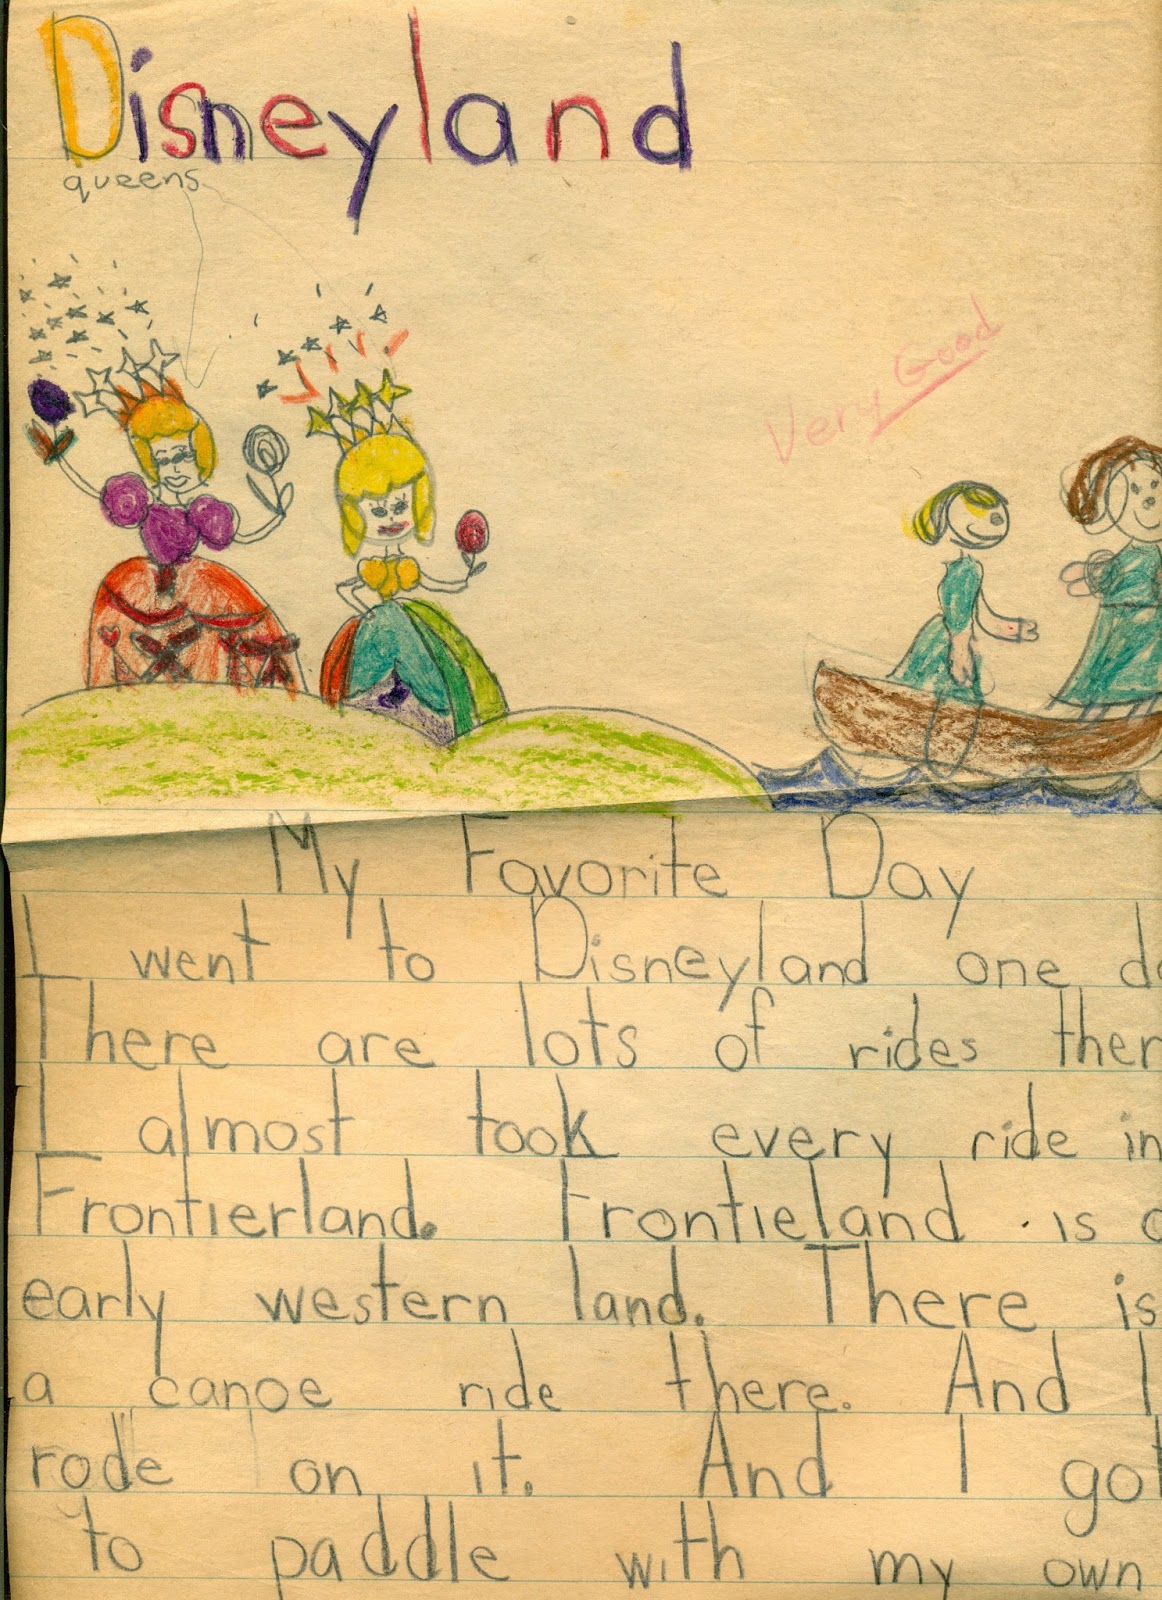 Disneyland
queens
Very Good
My Favorite Day
I went to Disneyland one
There are lots of rides
I almost took every ride in
Frontierland. Frontieland is
early western land. There is
a canoe ride there. And I
rode on it. And I got
to paddle with my own